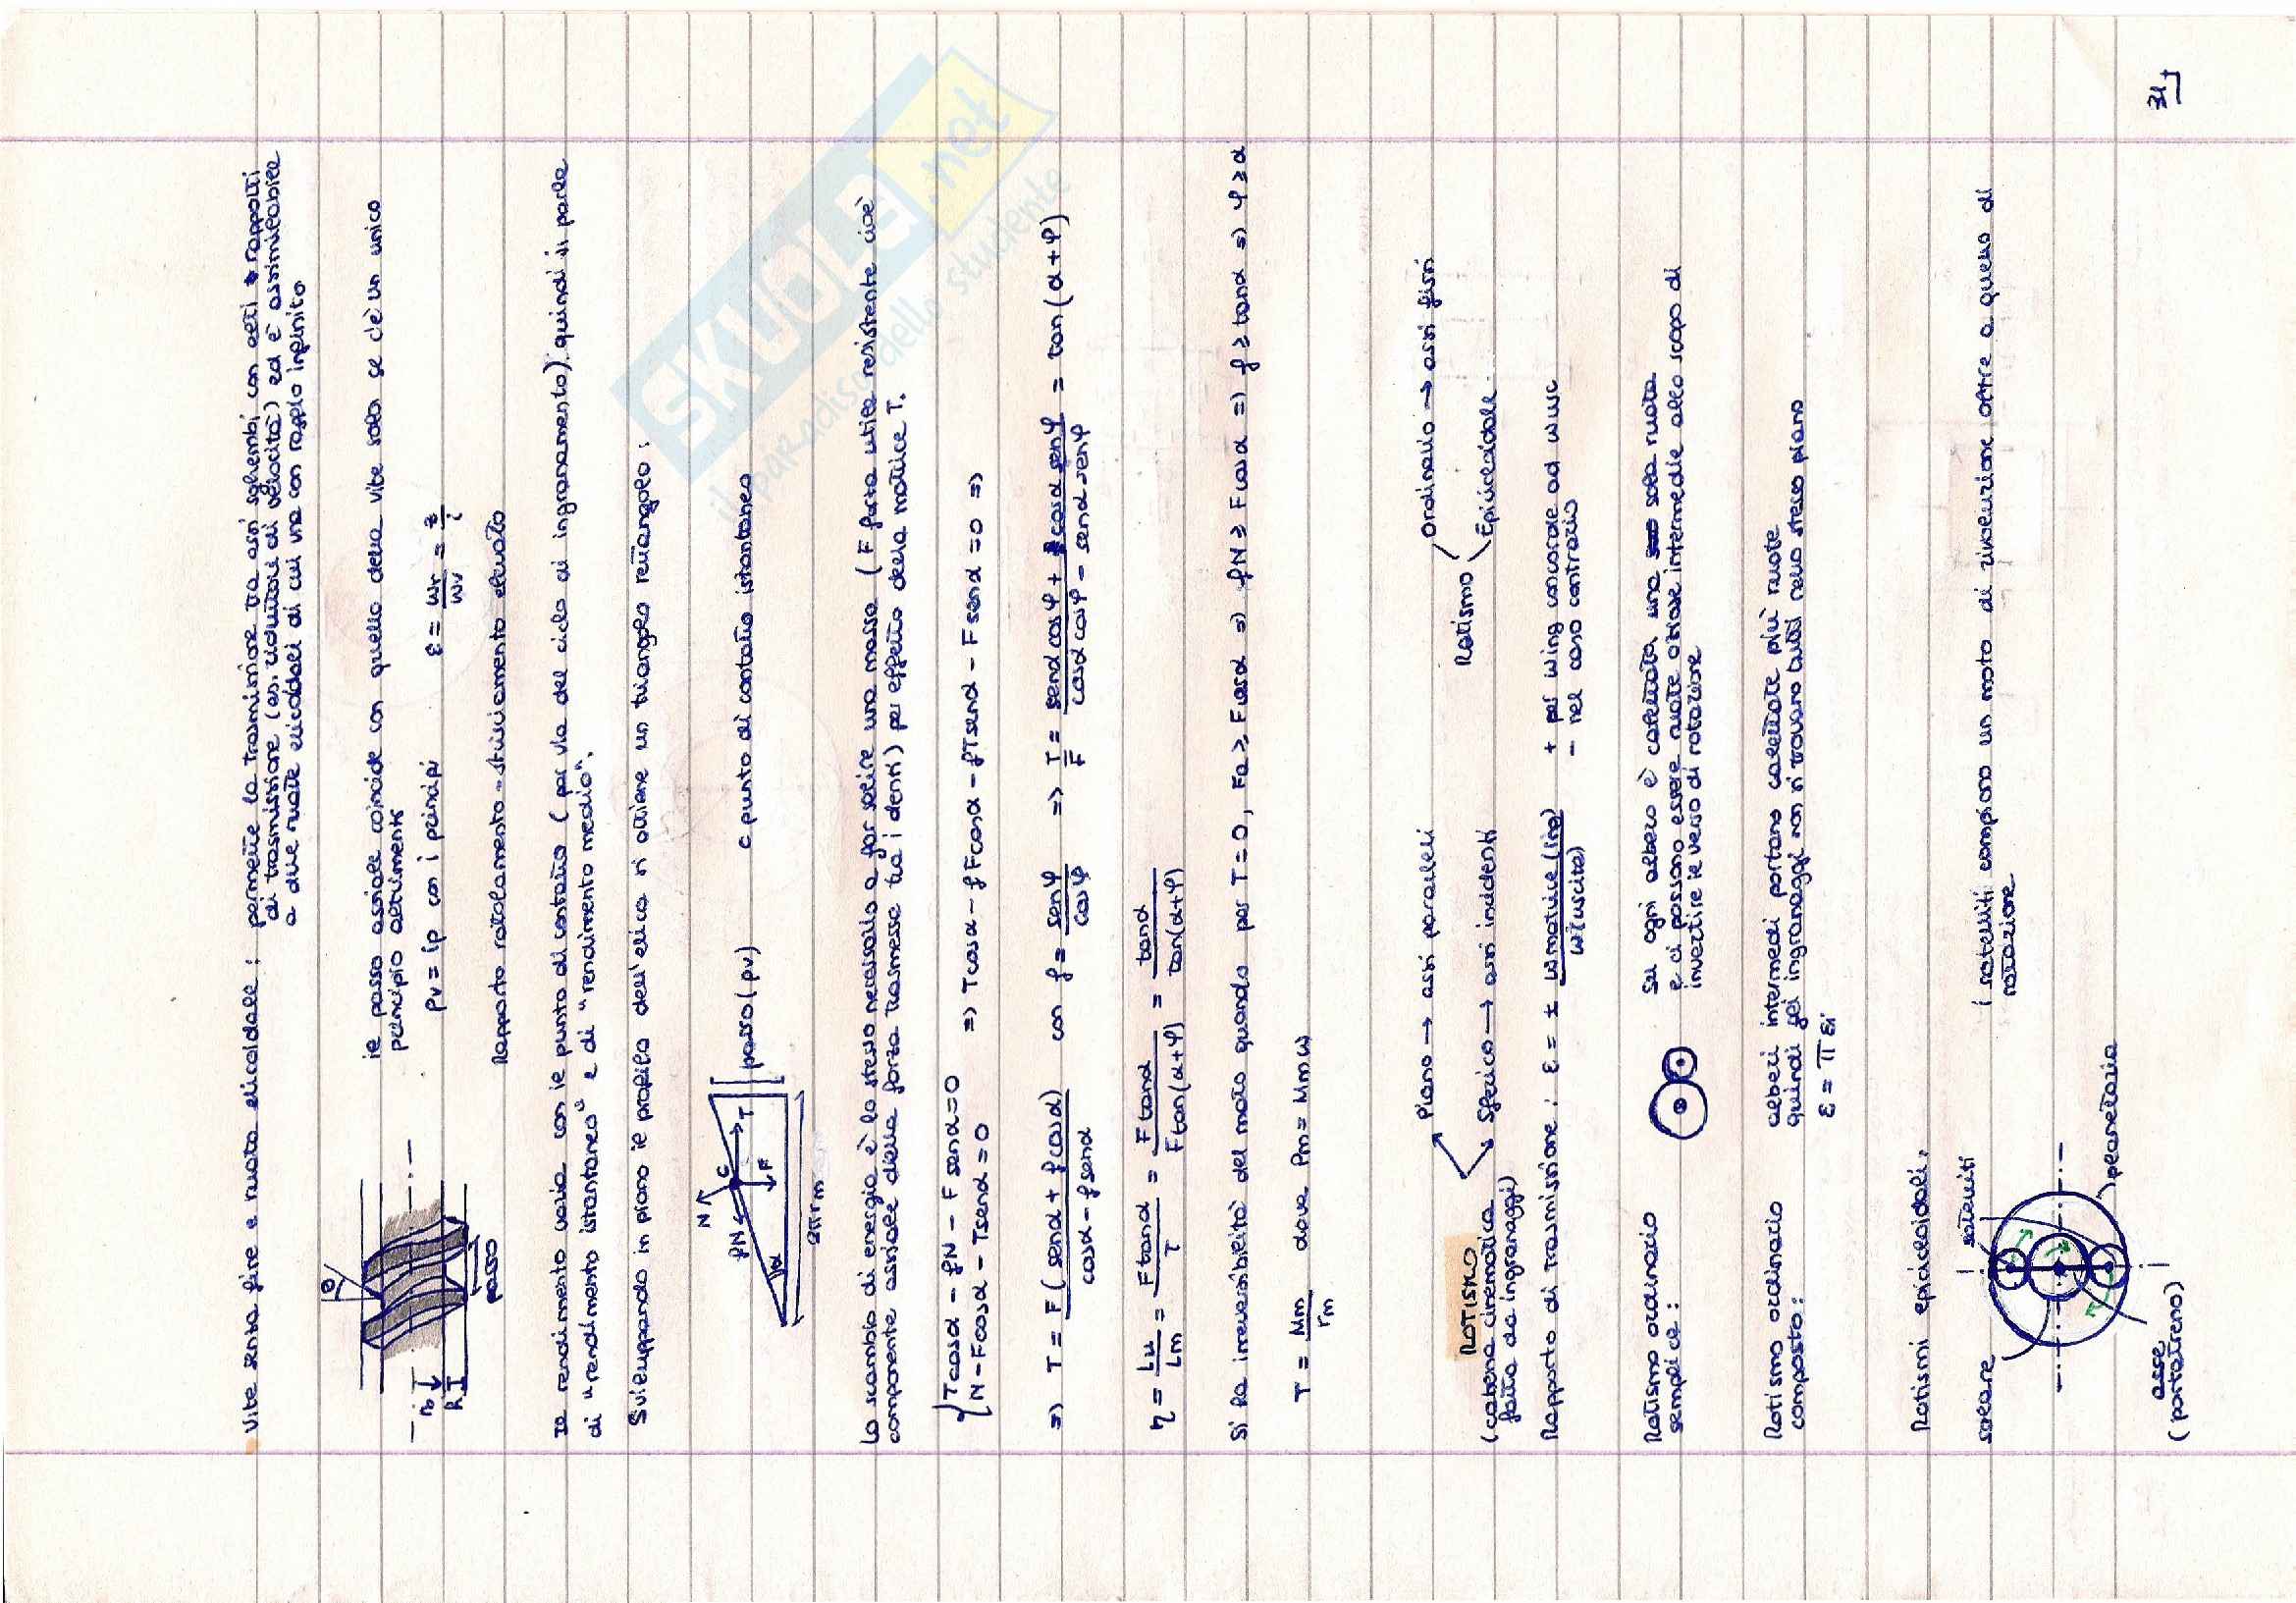 31
Vite senza fine e ruota elicoidale : permette la trasmissione tra assi sghembi, con alti rapporti
di trasmissione (es. riduttori di velocità) ed è assimilabile
a due ruote elicoidali di cui una con raggio infinito
θ
r
R
passo
il passo assiale coincide con quello della vite solo se c'è un unico
principio altrimenti
pv = ip con i principi
ε = ωr/ωv = z/i
Rapporto rotolamento-strisciamento elevato
Il rendimento varia con il punto di contatto (per via del ciclo di ingranamento), quindi si parla
di "rendimento istantaneo" e di "rendimento medio".
Sviluppando in piano il profilo dell'elica si ottiene un triangolo rettangolo :
N
fN
C
T
F
α
2πrm
passo (pv)
C punto di contatto istantaneo
Lo scambio di energia è lo stesso necessario a far salire una massa (F forza utile resistente cioè
componente assiale della forza trasmessa tra i denti) per effetto della motrice T.
{ Tcosα - fN - Fsenα = 0
N - Fcosα - Tsenα = 0
=> Tcosα - fFcosα - fTsenα - Fsenα = 0 =>
=> T = F(senα + fcosα)/(cosα - fsenα) con f = senφ/cosφ => T/F = (senα cosφ + cosα senφ)/(cosα cosφ - senα senφ) = tan(α+φ)
η = Lu/Lm = Ftanα/T = Ftanα/Ftan(α+φ) = tanα/tan(α+φ)
Si ha irreversibilità del moto quando per T=0, Fa ≥ Fcosα => fN ≥ Fcosα => f ≥ tanα => φ ≥ α
T = Mm/rm dove Pm = Mmω
ROTISMO
(catena cinematica
fatta da ingranaggi)
Piano → assi paralleli
Sferico → assi incidenti
Rotismo
Ordinario → assi fissi
Epicicloidale
Rapporto di trasmissione : ε = ± ωmotrice(ing)/ω(uscita)
+ per ωing concorde ad ωusc
- nel caso contrario
Rotismo ordinario
semplice :
Su ogni albero è calettata una sola ruota
e ci possono essere ruote oziose intermedie allo scopo di
invertire il verso di rotazione
Rotismo ordinario
composto :
alberi intermedi portano calettate più ruote
quindi gli ingranaggi non si trovano tutti nello stesso piano
ε = Π εi
Rotismi epicicloidali :
solare
satelliti
planetario
asse
(portatreno)
i satelliti compiono un moto di rivoluzione oltre a quello di
rotazione
SKUOLA.net
il paradiso dello studente